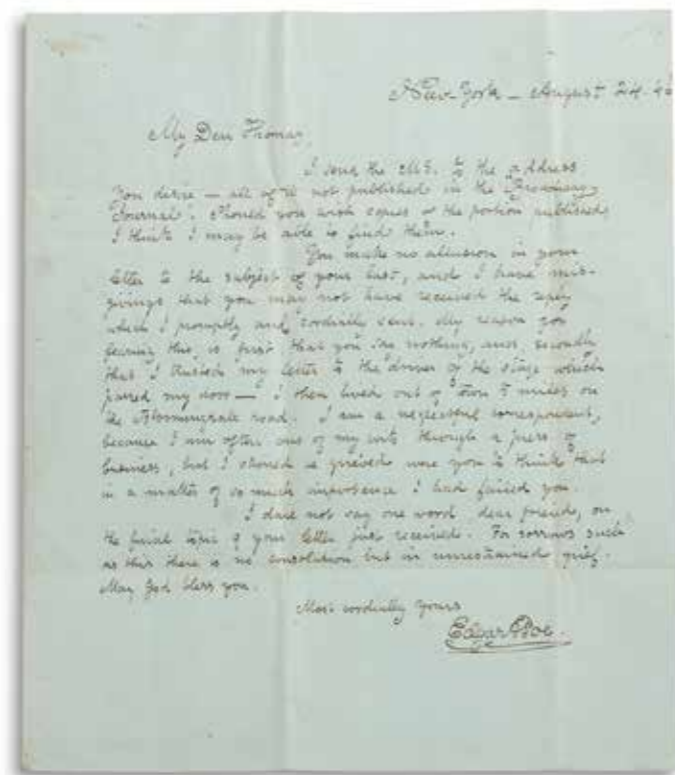 New-York – August 24. 45
My Dear Thomas,
I send the MS. to the address
you desire — all of it not published in the "Broadway
Journal". Should you wish copies of the portion published
I think I may be able to find them.
You make no allusion in your
letter to the subject of your last, and I have mis-
givings that you may not have received the reply
which I promptly and cordially sent. My reason for
fearing this, is first that you say nothing, and secondly
that I trusted my letter to the driver of the stage which
passed my door — I then lived out of town 5 miles on
the Bloomingdale road. I am a neglectful correspondent,
because I am often out of my wits through a press of
business, but I should be grieved were you to think that
in a matter of so much importance I had failed you.
I dare not say one word, dear friend, on
the final topic of your letter just received. For sorrows such
as this there is no consolation but in unrestrained grief.
May God bless you.
Most cordially Yours
Edgar A Poe.